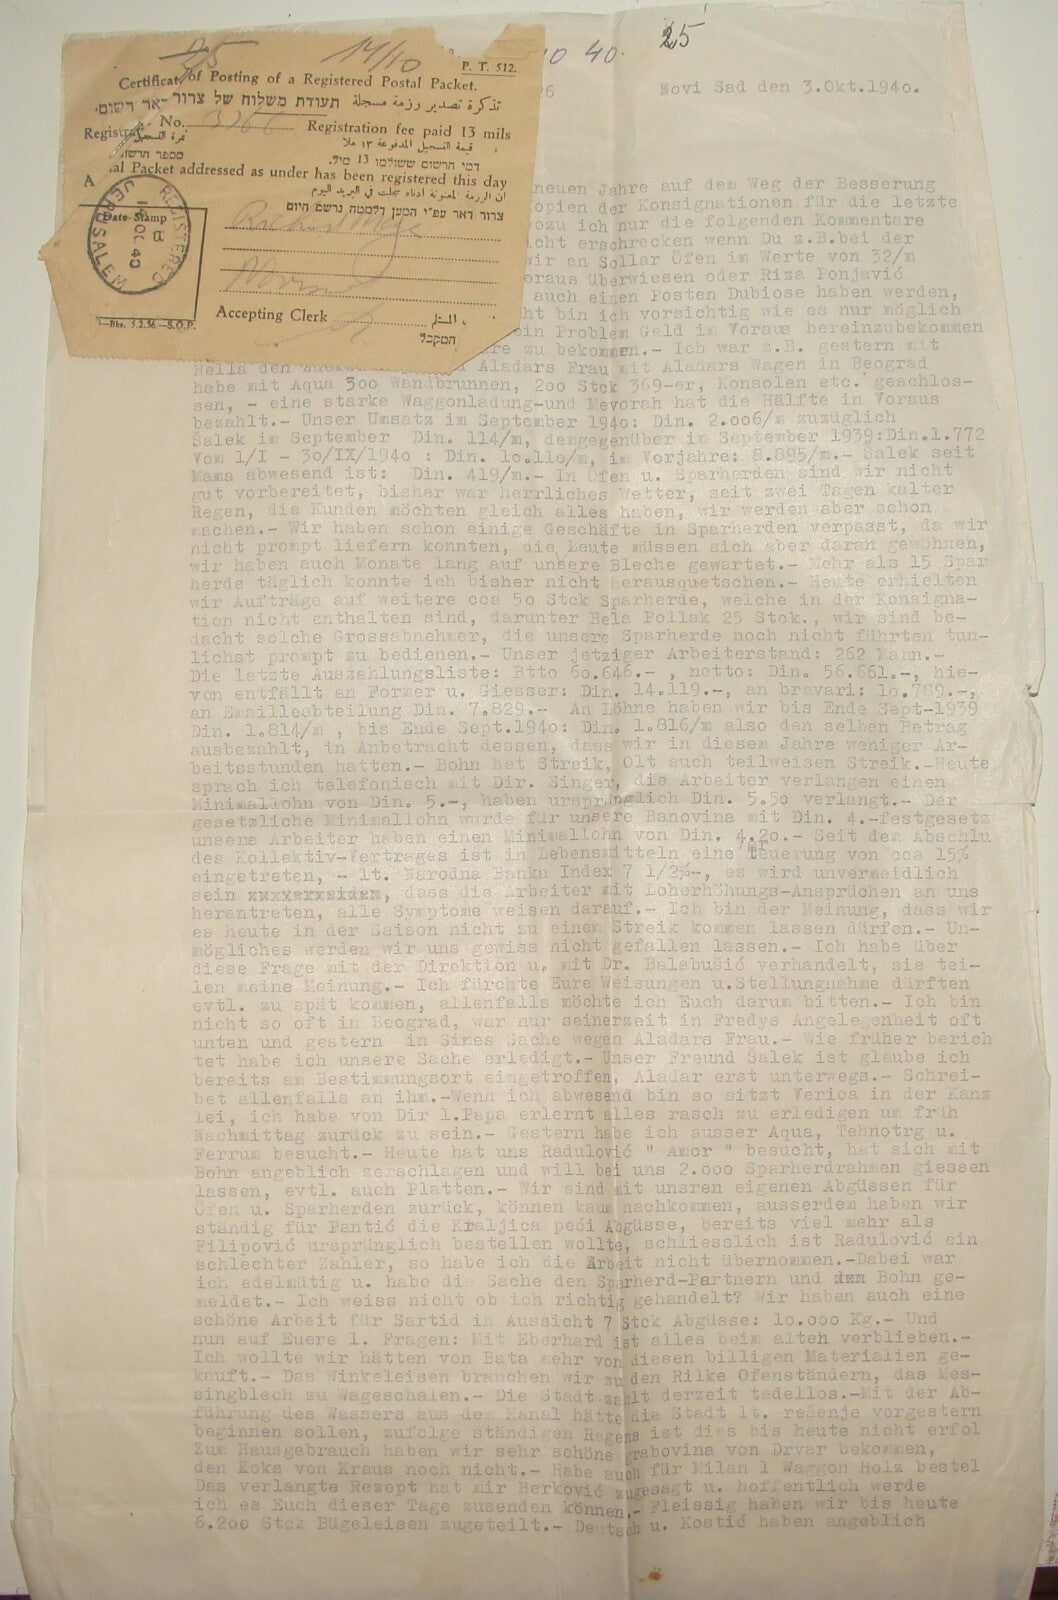 25
17/10
10 40.
25
P. T. 512.
Certificate of Posting of a Registered Postal Packet.
تذكرة تصدير رزمة مسجلة תעודת משלוח של צרור דאר רשום.
No. Registration fee paid 13 mils
نمرة التسجيل قيمة التسجيل المدفوعة ١٣ ملا
מספר הרשום דמי הרשום ששולמו 13 מיל.
A al Packet addressed as under has been registered this day
ان الرزمة المعنونة ادناه سجلت في البريد اليوم
צרור דאר עפ"י המען דלמטה נרשם היום
Date Stamp
REGISTERED
JERUSALEM
OC 40
Accepting Clerk المستلم
המקבל
Bks. 5.2.36 —S.O.P.
6 Novi Sad den 3.Okt.1940.
neuen Jahre auf dem Weg der Besserung
opien der Konsignationen für die letzte
wozu ich nur die folgenden Kommentare
icht erschrecken wenn Du z.B.bei der
wir an Sollar Öfen im Werte von 32/m
oraus überwiesen oder Riza Ponjavić
auch einen Posten Dubiose haben werden,
ht bin ich vorsichtig wie es nur möglich
ein Problem Geld im Voraus hereinzubekommen
re zu bekommen.- Ich war z.B. gestern mit
Hella den Aladars Frau mit Aladars Wagen in Beograd
habe mit Aqua 300 Wandbrunnen, 200 Stck 369-er, Konsolen etc. geschlos-
sen, - eine starke Waggonladung-und Mevorah hat die Hälfte in Voraus
bezahlt.- Unser Umsatz im September 1940: Din. 2.006/m zuzüglich
Salek im September Din. 114/m, demgegenüber im September 1939:Din.1.772
Vom 1/I - 30/IX/1940 : Din. 10.110/m, im Vorjahre: 8.895/m.- Salek seit
Mama abwesend ist: Din. 419/m.- In Öfen u. Sparherden sind wir nicht
gut vorbereitet, bisher war herrliches Wetter, seit zwei Tagen kalter
Regen, die Kunden möchten gleich alles haben, wir werden aber schon
machen.- Wir haben schon einige Geschäfte in Sparherden verpasst, da wir
nicht prompt liefern konnten, die Leute müssen sich aber daran gewöhnen,
wir haben auch Monate lang auf unsere Bleche gewartet.- Mehr als 15 Spar
herde täglich konnte ich bisher nicht herausquetschen.- Heute erhielten
wir Aufträge auf weitere cca 50 Stck Sparherde, welche in der Konsigna-
tion nicht enthalten sind, darunter Bela Pollak 25 Stck., wir sind be-
dacht solche Grossabnehmer, die unsere Sparherde noch nicht führten tun-
lichst prompt zu bedienen.- Unser jetziger Arbeiterstand: 262 Mann.-
Die letzte Auszahlungsliste: Btto 60.646.- , netto: Din. 56.661.-, hie-
von entfällt an Former u. Giesser: Din. 14.119.-, an bravari: 10.789.-,
an Emailleabteilung Din. 7.829.- An Löhne haben wir bis Ende Sept-1939
Din. 1.814/m , bis Ende Sept.1940: Din. 1.816/m also den selben Betrag
ausbezahlt, in Anbetracht dessen, dass wir in diesem Jahre weniger Ar-
beitsstunden hatten.- Bohn hat Streik, Olt auch teilweisen Streik.-Heute
sprach ich telefonisch mit Dir. Singer, die Arbeiter verlangen einen
Minimallohn von Din. 5.-, haben ursprünglich Din. 5.50 verlangt.- Der
gesetzliche Minimallohn wurde für unsere Banovina mit Din. 4.-festgesetz
unsere Arbeiter haben einen Minimallohn von Din. 4.20.- Seit dem Abschlu
des Kollektiv-Vertrages ist in Lebensmitteln eine Teuerung von cca 15%
eingetreten, - lt. Narodna Banka Index 7 1/2%-, es wird unvermeidlich
sein , dass die Arbeiter mit Loherhöhungs-Ansprüchen an uns
herantreten, alle Symptome weisen darauf.- Ich bin der Meinung, dass wir
es heute in der Saison nicht zu einem Streik kommen lassen dürfen.- Un-
mögliches werden wir uns gewiss nicht gefallen lassen.- Ich habe über
diese Frage mit der Direktion u. mit Dr. Balabušić verhandelt, sie tei-
len meine Meinung.- Ich fürchte Eure Weisungen u.Stellungnahme dürften
evtl. zu spät kommen, allenfalls möchte ich Euch darum bitten.- Ich bin
nicht so oft in Beograd, war nur seinerzeit in Fredys Angelegenheit oft
unten und gestern in Simes Sache wegen Aladars Frau.- Wie früher berich
tet habe ich unsere Sache erledigt.- Unser Freund Salek ist glaube ich
bereits am Bestimmungsort eingetroffen, Aladar erst unterwegs.- Schrei-
bet allenfalls an ihm.-Wenn ich abwesend bin so sitzt Verica in der Kanz
lei, ich habe von Dir l.Papa erlernt alles rasch zu erledigen um früh
Nachmittag zurück zu sein.- Gestern habe ich ausser Aqua, Tehnotrg u.
Ferrum besucht.- Heute hat uns Radulović " Amor " besucht, hat sich mit
Bohn angeblich zerschlagen und will bei uns 2.000 Sparherdrahmen giessen
lassen, evtl. auch Platten.- Wir sind mit unsren eigenen Abgüssen für
Öfen u. Sparherden zurück, können kaum nachkommen, ausserdem haben wir
ständig für Pantić die Kraljica peći Abgüsse, bereits viel mehr als
Filipović ursprünglich bestellen wollte, schliesslich ist Radulović ein
schlechter Zahler, so habe ich die Arbeit nicht übernommen.-Dabei war
ich edelmütig u. habe die Sache den Sparherd-Partnern und Bohn ge-
meldet.- Ich weiss nicht ob ich richtig gehandelt? Wir haben auch eine
schöne Arbeit für Sartid in Aussicht 7 Stck Abgüsse: 10.000 Kg.- Und
nun auf Euere l. Fragen: Mit Eberhard ist alles beim alten verblieben.-
Ich wollte wir hätten von Bata mehr von diesen billigen Materialien ge-
kauft.- Das Winkeleisen brauchen wir zu den Rilke Ofenständern, das Mes-
singblech zu Wageschalen.- Die Stadt zahlt derzeit tadellos.-Mit der Ab-
führung des Wassers aus dem Kanal hätte die Stadt lt. rešenje vorgestern
beginnen sollen, zufolge ständigen Regens ist dies bis heute nicht erfol
Zum Hausgebrauch haben wir sehr schöne grabovina von Drvar bekommen,
den Koks von Kraus noch nicht.- Habe auch für Milan 1 Waggon Holz bestel
Das verlangte Rezept hat mir Berković zugesagt u. hoffentlich werde
ich es Euch dieser Tage zusenden können.- Fleissig haben wir bis heute
6.200 Stck Bügeleisen zugeteilt.- Deutsch u. Kostić haben angeblich